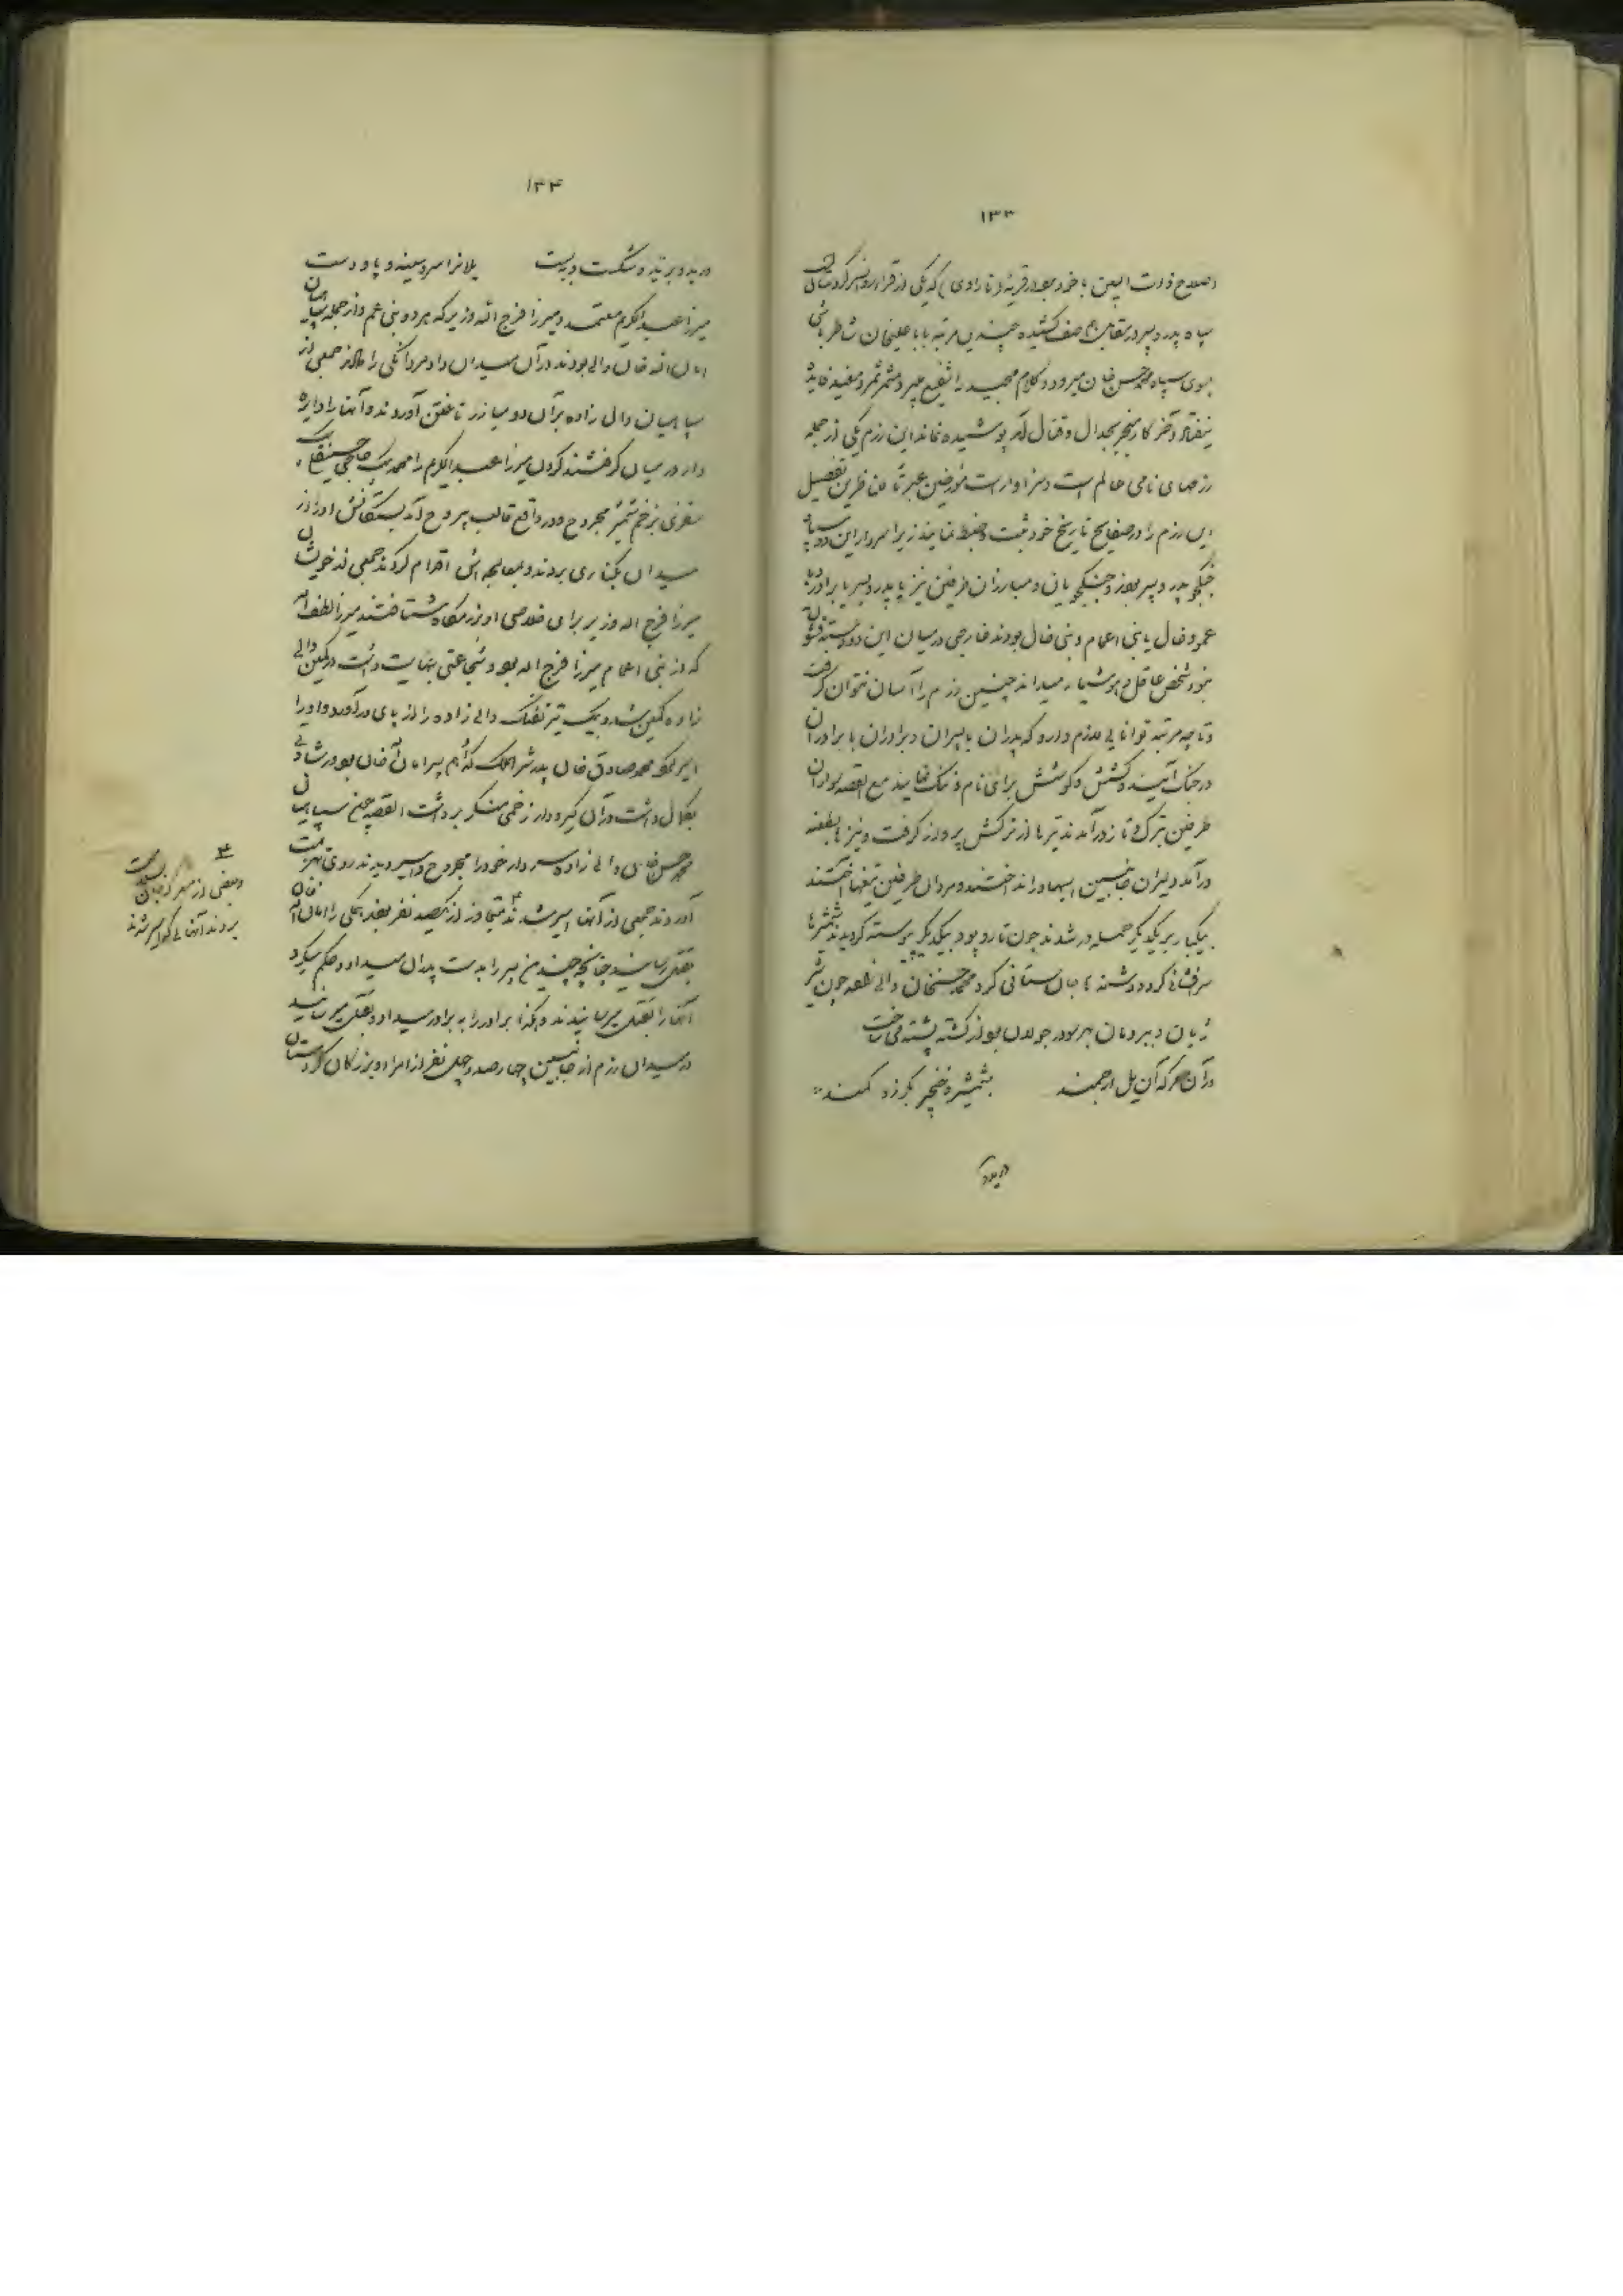 ۱۳۳
اصلاح ذات البین با خود بود در قریهٔ (تاراوی) که یکی از قراء
سپاه پدر و پسر در مقابل هم صف کشیده چندین مرتبه باباعلیخان شاطرباشی
بسوی سپاه محمدحسن خان میرود و کلام مجید را شفیع میبرد مثمر ثمر و مفید فایده
نیفتاد آخر کار منجر بجدال و قتال آمد پوشیده نماند این رزم یکی از جمله
رزمهای نامی عالم است و سزاوار است مورخین عبرتاً للناظرین تفصیل
این رزم را در صفایح تاریخ خود ثبت و ضبط نمایند زیرا سردار این دو سپاه
جنگجو پدر و پسر بودند و جنگجویان و مبارزان طرفین نیز یا پدر و پسر یا برادر
عمو و خال یا بنی اعمام و بنی خال بودند خارجی در میان این دو دسته قشون
نبود شخص عاقل و هوشیار میداند چنین رزم را آسان نتوان گرفت
و تا چه مرتبه توانایی لازم دارد که پدران با پسران و برادران با برادران
در جنگ آیند و کشش و کوشش برای نام و ننگ نمایند مع القصه سواران
طرفین بترک و تاز درآمدند تیرها از ترکش پرواز گرفت و نیزه‌ها بطعنه
درآمد دلیران جانبین اسبها دراند اختند و مردان طرفین تیغها آختند
بیکبار بر یکدیگر حمله‌ور شدند چون تار و پود بیکدیگر پیوسته گردیدند شمشیرها
سرفشانی کرد و دشنه‌ها جان ستانی کرد محمدحسنخان والی چون شیر
ژیان و ببر دمان بهر سو در جولان بود از کشته پشته می‌ساخت
در آن معرکه آن یل ارجمند بشمشیر و خنجر بگرز و کمند
۱۳۴
درید و برید و شکست و ببست یلانرا سر و سینه و پا و دست
میرزا عبدالکریم معتمد و میرزا فرج الله وزیر که هر دو بنی عم و از جمله سپاهیان
امان الله خان والی بودند در آن میدان داد مردانگی را دادند جمعی از
سپاهیان والی زاده بر آن دو مبارز تاختن آوردند و آنها را دایره
وار در میان گرفتند گردن میرزا عبدالکریم را محمد بیک
بزخم شمشیر مجروح و در واقع قالب بیروح آمد بستگانش او را از
میدان بکناری بردند و بمعالجه اش اقدام کردند جمعی از خویشان
میرزا فرج الله وزیر برای خلاصی او برزمگاه شتافتند میرزا لطف الله
که از بنی اعمام میرزا فرج الله بود و شجاعتی بنهایت داشت در کمین والی
زاده کمین شد و بیک تیر تفنگ والی زاده را از پای درآورد و او را
اسیر نمود محمدصادق خان پدر شرف الملک که او هم پسر امان الله خان بود و رشادتی
بکمال داشت در آن گیر و دار زخمی منکر برداشت القصه چون سپاهیان
محمدحسن خان والی زاده سردار خود را مجروح و اسیر دیدند روی بهزیمت
آوردند جمعی از آنها اسیر شدند متجاوز از یکصد نفر بودند همگی را امان الله خان
بقتل رسانید چنانچه چندین پسر را بدست پدران میداد و حکم میکرد
آنها را بقتل میرسانیدند و هکذا برادر را به برادر میداد و بقتل میرسانید
در میدان رزم از جانبین چهارصد و چهل نفر از امراء و بزرگان کردستان
و بعضی از معرکه جان بسلامت
بردند آنهائی که اسیر شدند
درید و